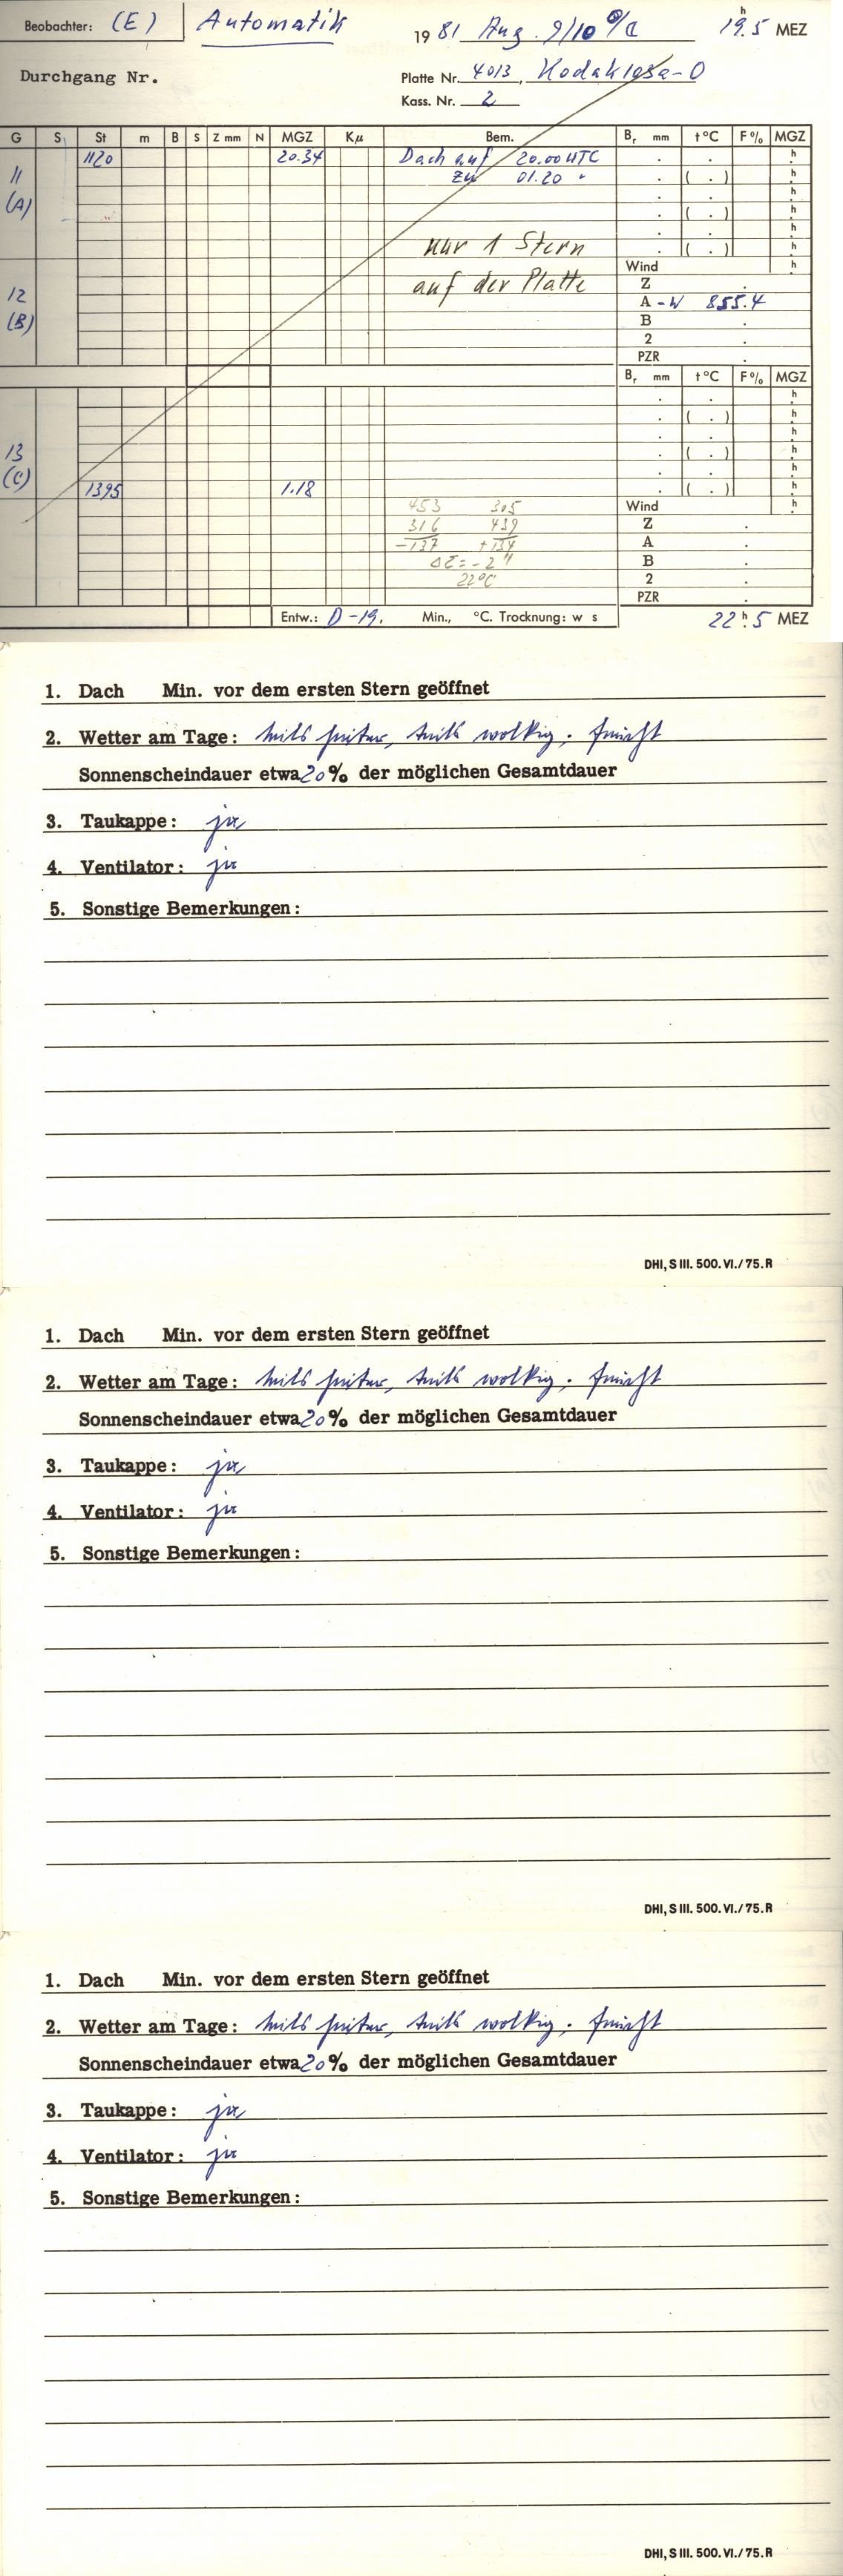 Beobachter: (E) Automatik 1981 Aug. 9/10 19h.5 MEZ
Durchgang Nr.
Platte Nr. 4013, Kodak 103a-O
Kass. Nr. 2
G S St m B S Z mm N MGZ Kμ Bem. Br mm t°C F% MGZ
11 1120 20.34 Dach auf 20.00 UTC . . h
(A) zu 01.20 " . ( . ) h
. . h
. ( . ) h
. . h
nur 1 Stern . ( . ) h
Wind h
12 auf der Platte Z .
A - W 855.4
(B) B .
2 .
PZR .
Br mm t°C F% MGZ
. . h
. ( . ) h
. . h
13 . ( . ) h
(C) . . h
1395 1.18 . ( . ) h
453 305 Wind h
316 439 Z .
-137 +134 A .
= -2" B .
22°C 2 .
PZR .
Entw.: D-19. Min., °C. Trocknung: w s 22h.5 MEZ
1. Dach Min. vor dem ersten Stern geöffnet
2. Wetter am Tage: teils heiter, teils wolkig. feucht
Sonnenscheindauer etwa 20% der möglichen Gesamtdauer
3. Taukappe: ja
4. Ventilator: ja
5. Sonstige Bemerkungen:
DHI, S III. 500. VI./75. R
1. Dach Min. vor dem ersten Stern geöffnet
2. Wetter am Tage: teils heiter, teils wolkig. feucht
Sonnenscheindauer etwa 20% der möglichen Gesamtdauer
3. Taukappe: ja
4. Ventilator: ja
5. Sonstige Bemerkungen:
DHI, S III. 500. VI./75. R
1. Dach Min. vor dem ersten Stern geöffnet
2. Wetter am Tage: teils heiter, teils wolkig. feucht
Sonnenscheindauer etwa 20% der möglichen Gesamtdauer
3. Taukappe: ja
4. Ventilator: ja
5. Sonstige Bemerkungen:
DHI, S III. 500. VI./75. R